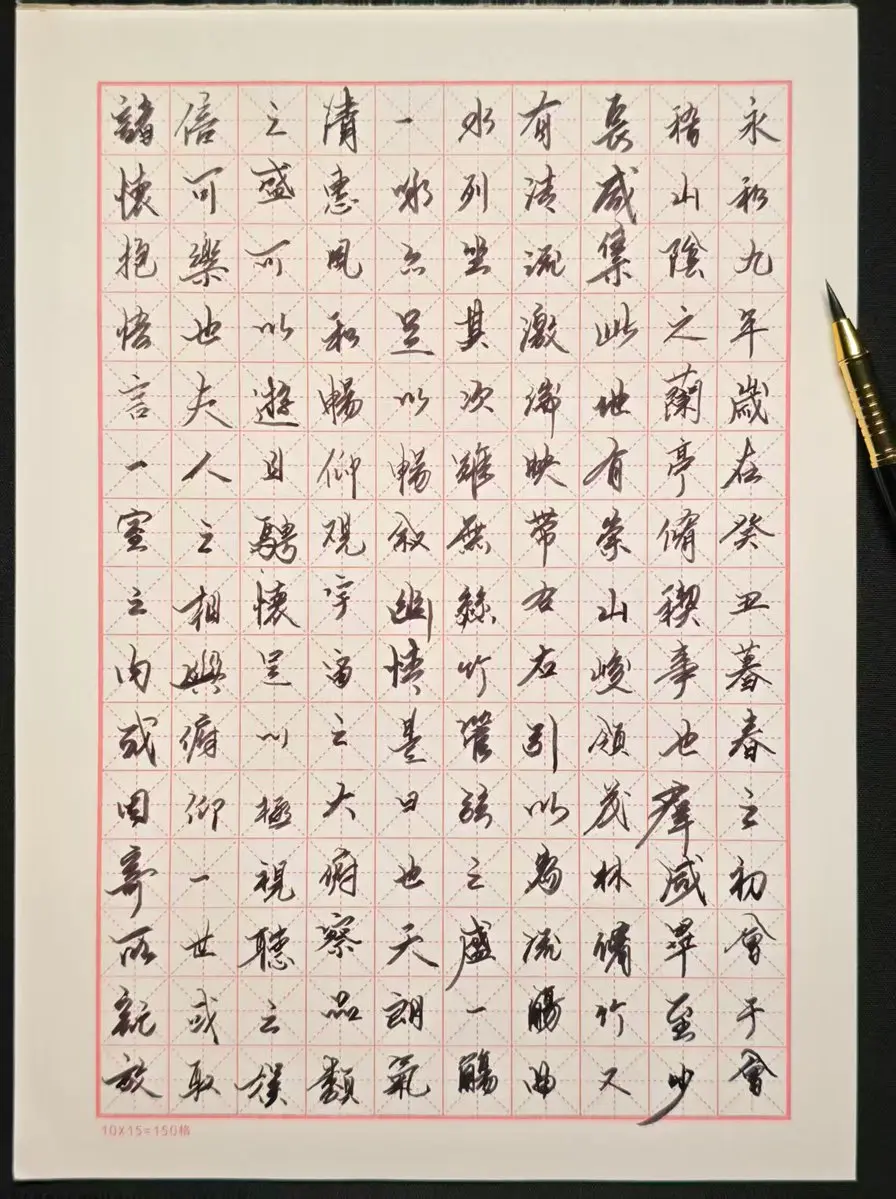 永和九年歲在癸丑暮春之初會于會
稽山陰之蘭亭脩稧事也羣咸畢至少
長咸集此地有崇山峻領茂林脩竹又
有清流激湍映帶左右引以為流觴曲
水列坐其次雖無絲竹管弦之盛一觴
一詠亦足以暢敘幽情是日也天朗氣
清惠風和暢仰觀宇宙之大俯察品類
之盛可以遊目騁懷足以極視聽之娛
信可樂也夫人之相與俯仰一世或取
諸懷抱悟言一室之內或因寄所託放
10X15=150格